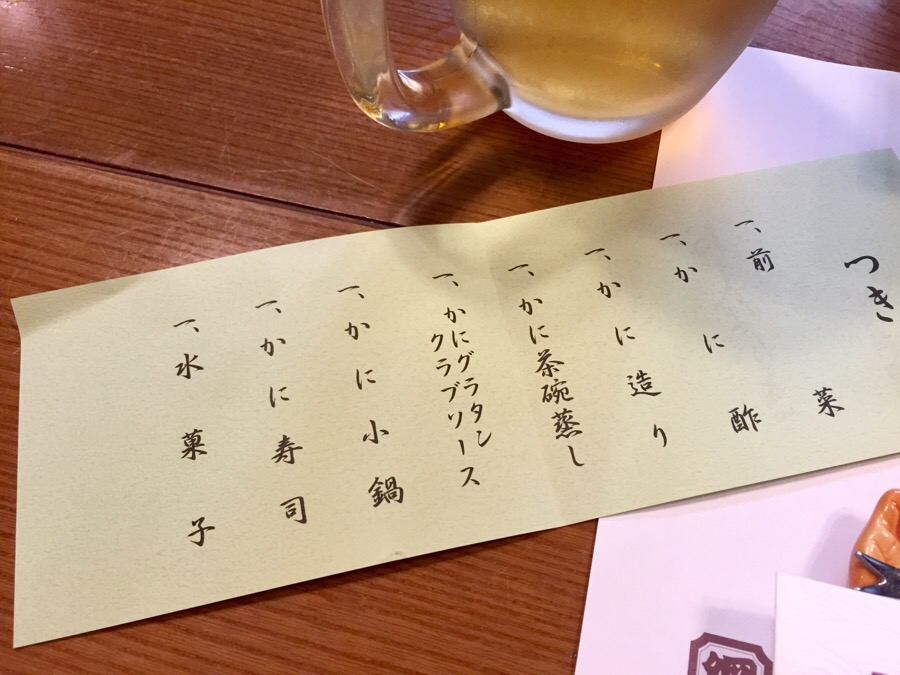 つき
一、前菜
一、かに酢
一、かに造り
一、かに茶碗蒸し
一、かにグラタン
クラブソース
一、かに小鍋
一、かに寿司
一、水菓子